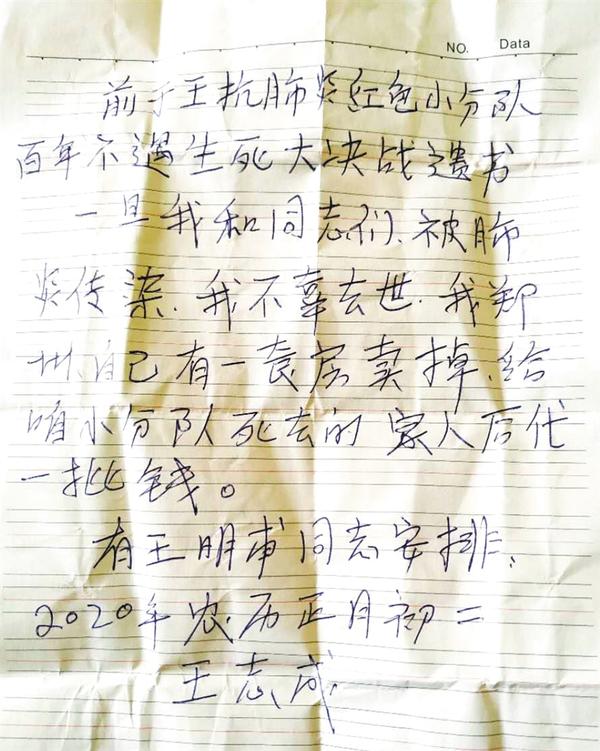 NO. Data
前于王抗肺炎红色小分队
百年不遇生死大决战遗书
一旦我和同志们、被肺
炎传染.我不幸去世.我郑
州、自己有一套房卖掉、给
咱小分队死去的家人后代
一批钱。
有王明甫同志安排、
2020年农历正月初二
王志成